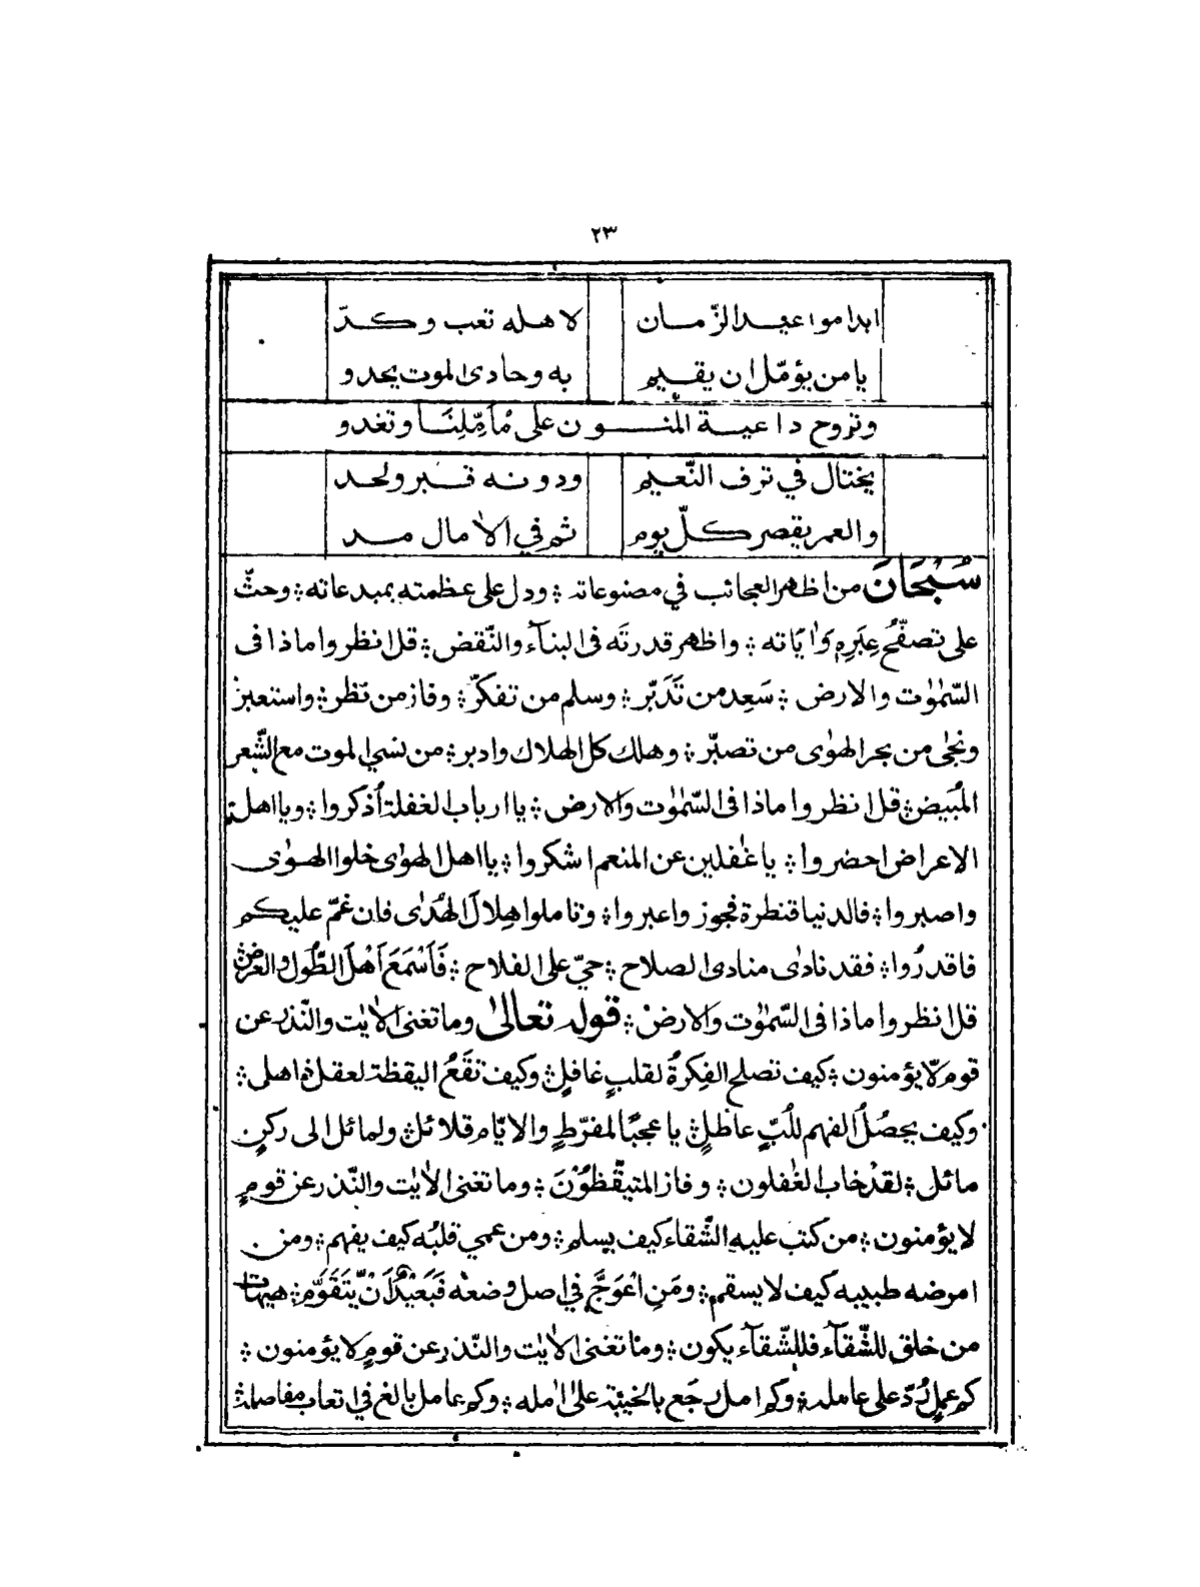 ٢٣
ابدا مواعيد الزّمان لاهله تعب وكدّ
يا من يؤمّل ان يقيم به وحادى الموت يحدو
وتروح داعية المنون على مُأَمِّلِنَا وتغدو
يختال في ترف النّعيم ودونه قبر ولحد
والعمر يقصر كلّ يوم ثم في الاٰمال مد
سُبْحَانَ من اظهر العجائب في مصنوعاته ؛ ودل على عظمته بمبدعاته ؛ وحثّ
على تصفّح عِبَرِهٖ وَاٰيَاته ؛ واظهر قدرتَه فى البنآء والنّقض ؛ قل انظروا ماذا فى
السّمٰوٰت والارض ؛ سَعِد من تَدَبّر ؛ وسلم من تفكرّ ؛ وفاز من نظر ؛ واستعبر
ونجٰى من بحر الهوٰى من تصبّر ؛ وهلك كل الهلاك وادبر ؛ من نسي الموت مع الشّعر
المُبَيض ؛ قل انظروا ماذا فى السّمٰوٰت والارض ؛ يا ارباب الغفلة اُذكروا ؛ ويا اهل
الاعراض احضروا ؛ يا غٰفلين عن المنعم اشكروا ؛ يا اهل الهوٰى خلوا الهوٰى
واصبروا ؛ فالدنيا قنطرة فجوز واعبروا ؛ وتاملوا هِلالَ الهُدٰى فان غمّ عليكم
فاقدرُوا ؛ فقد نادٰى منادى الصلاح ؛ حيّ على الفلاح ؛ فَاَسْمَعَ اَهْلَ الطُّول والعرض
قل انظروا ماذا فى السّمٰوٰت والارض ؛ قوله تعالىٰ وما تغنى الاٰيٰت والنّذر عن
قوم لّا يؤمنون ؛ كيف تصلح الفِكرةُ لقلبٍ غافلٍ ؛ وكيف تقَعُ اليقظة لعقل ذاهل ؛
وكيف يحصُلُ الفهم للُبٍّ عاطلٍ ؛ يا عجبًا لمفرّطٍ والايّام قلائل ؛ ولمائل الى ركنٍ
مائل ؛ لقد خاب الغٰفلون ؛ وفاز المتيقّظوْنَ ؛ وما تغنى الاٰيٰت والنّذر عن قومٍ
لا يؤمنون ؛ من كتب عليه الشّقاء كيف يسلم ؛ ومن عمي قلبُه كيف يفهم ؛ ومن
امرضه طبيبه كيف لا يسقم ؛ ومَنِ اعْوَجَّ في اصل وضعه فَبَعِيْدٌ اَنْ يَّتَقَوَّم ؛ هيهات
من خلق للشّقآء فللشّقآء يكون ؛ وما تغنى الاٰيٰت والنّذر عن قومٍ لا يؤمنون ؛
كم عملٍ رُدّ على عامله ؛ وكم امل رجَع بالخيبة علىٰ اٰمله ؛ وكم عامل بالغ في اتعاب مفاصله ؛